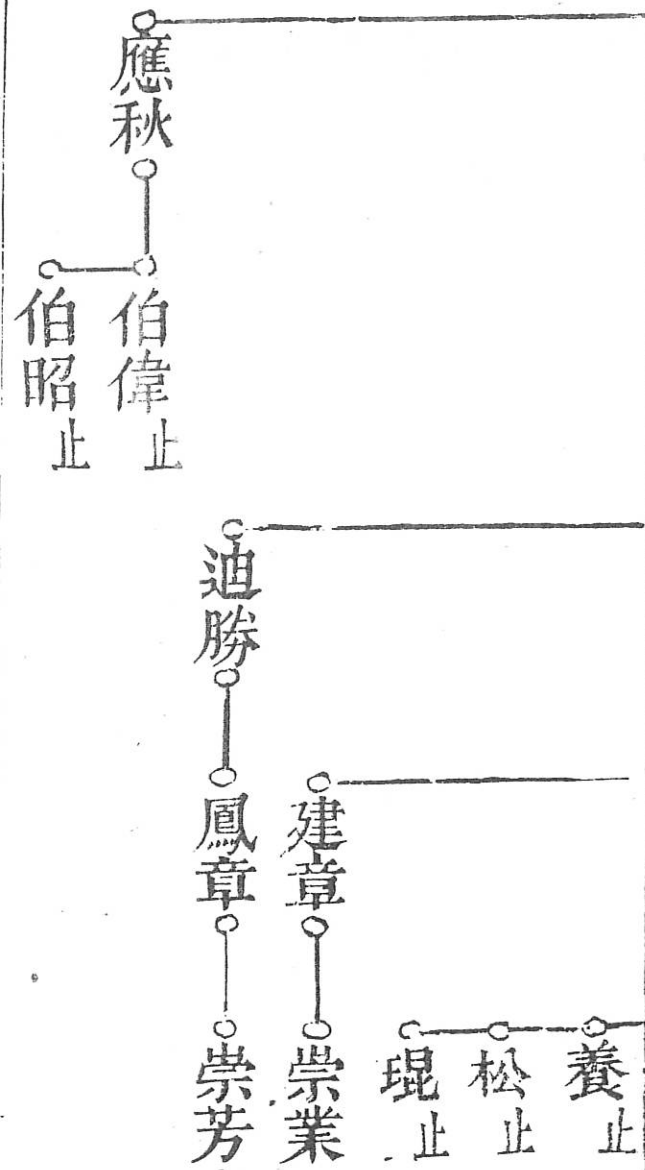 應秋
伯偉止
伯昭止
迪勝
建章
鳳章
養止
松止
琨止
崇業
崇芳